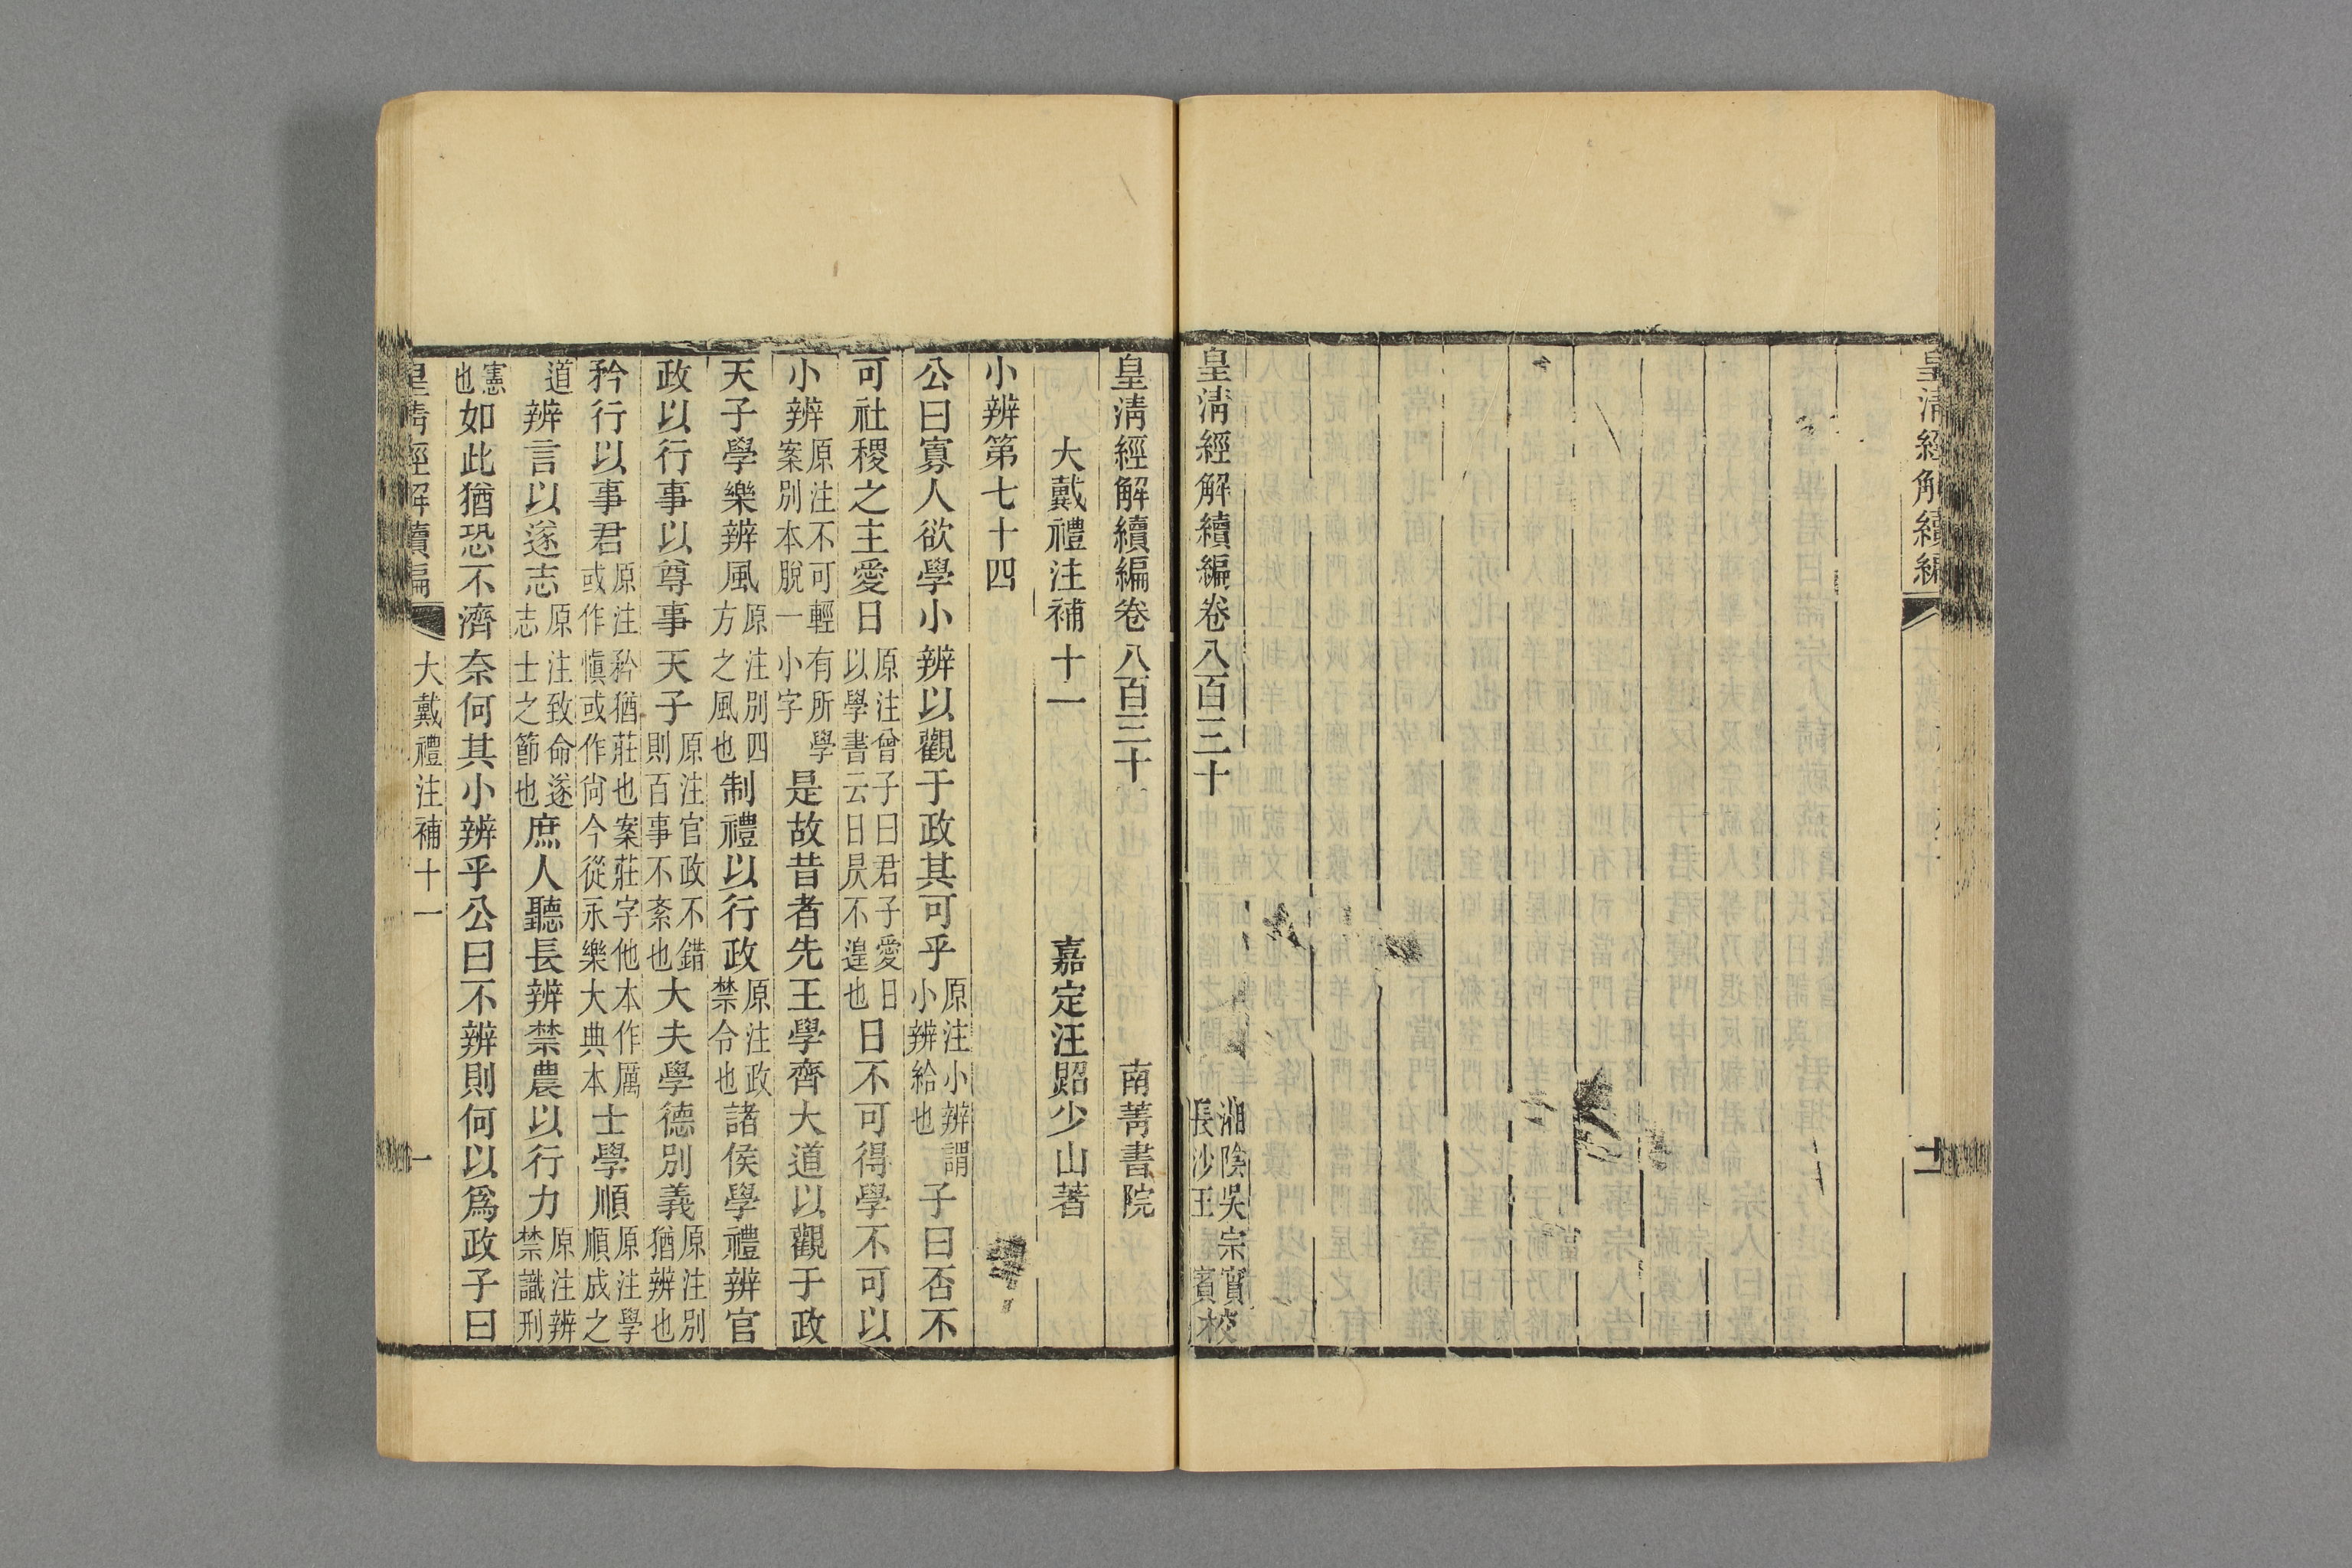 皇清經解續編
十
皇清經解續編卷八百三十
湘陰吳宗實
長沙王 賓校
皇清經解續編卷八百三十 南菁書院
大戴禮注補十一 嘉定汪照少山著
小辨第七十四
公曰寡人欲學小辨以觀于政其可乎原注小辨謂小辨給也子曰否不
可社稷之主愛日原注曾子曰君子愛日以學書云日昃不遑也日不可得學不可以
小辨原注不可輕有所學案別本脫一小字是故昔者先王學齊大道以觀于政
天子學樂辨風原注別四方之風也制禮以行政原注政禁令也諸侯學禮辨官
政以行事以尊事天子原注官政不錯則百事不紊也大夫學德別義原注別猶辨也
矜行以事君原注矜猶莊也案莊字他本作厲或作愼或作尙今從永樂大典本士學順原注學順成之
道辨言以遂志原注致命遂志士之節也庶人聽長辨禁農以行力原注辨禁識刑
憲也如此猶恐不濟奈何其小辨乎公曰不辨則何以爲政子曰
皇清經解續編 大戴禮注補十一 一